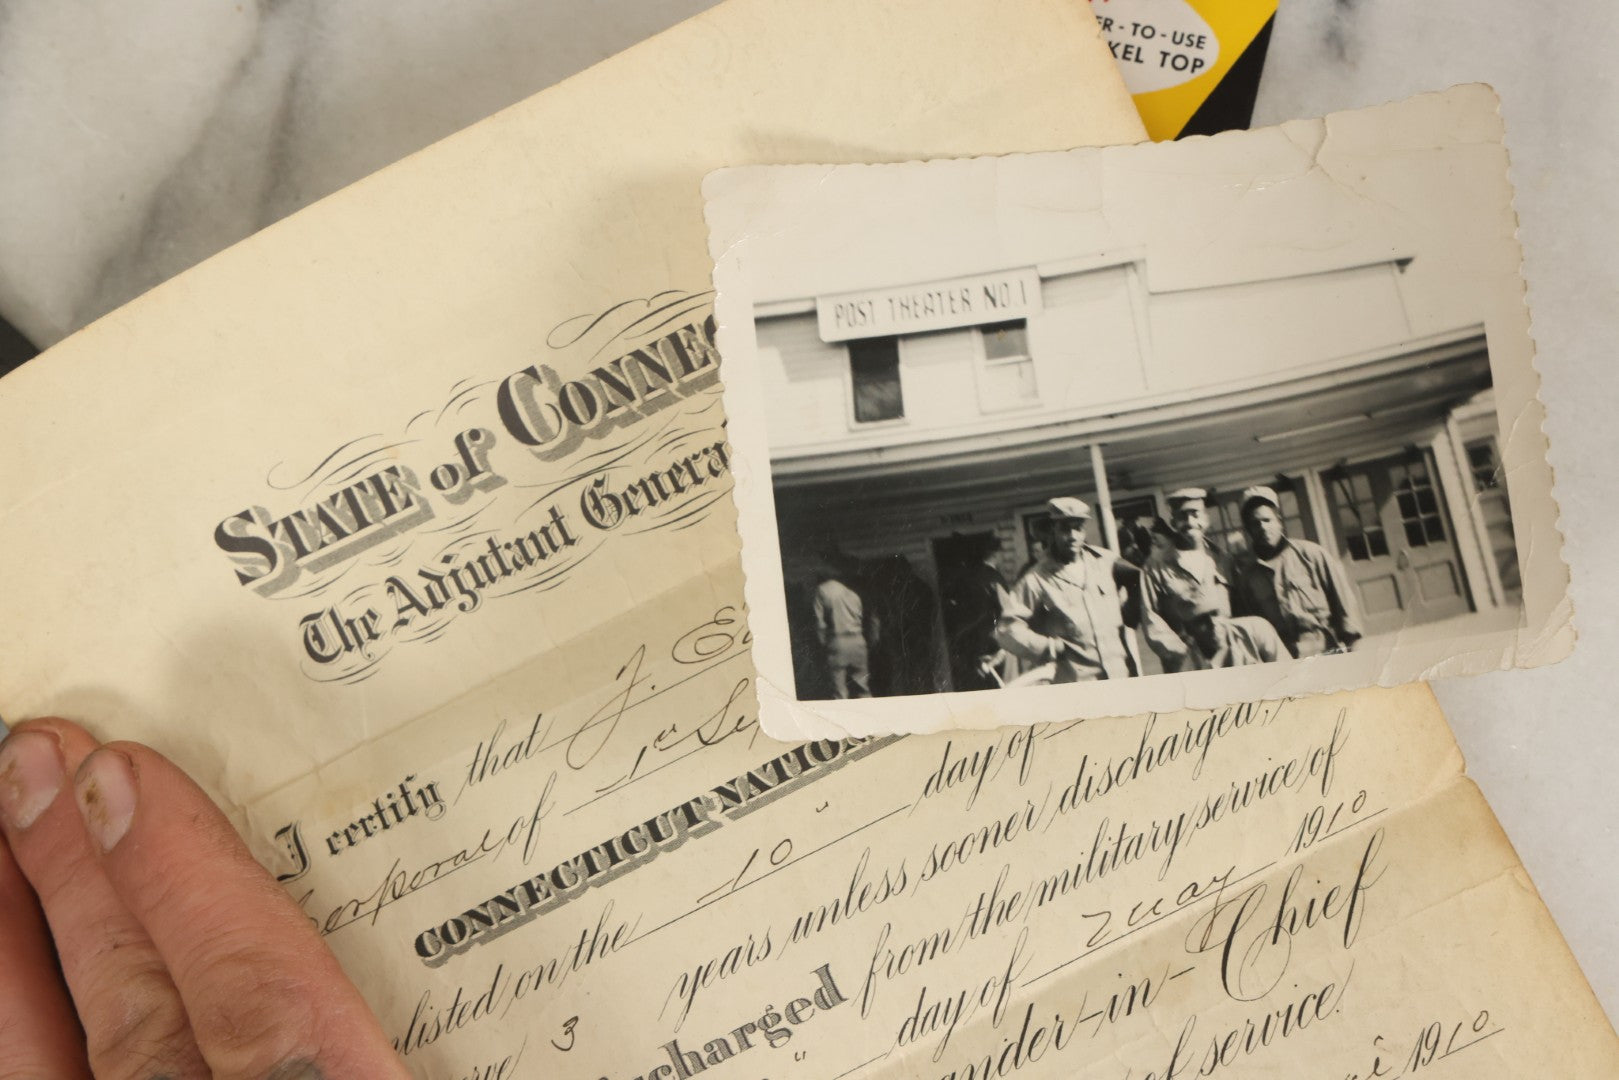 ER-TO-USE
KEL TOP
POST THEATER NO.1
STATE of CONNEC
The Adjutant Genera
I certify that J. E
Corporal of 1st Se
CONNECTICUT NATION
nlisted on the 10" day of
erve 3 years unless sooner discharged,
scharged from the military service of
" day of May 1910
ander-in-Chief
of service.
1910